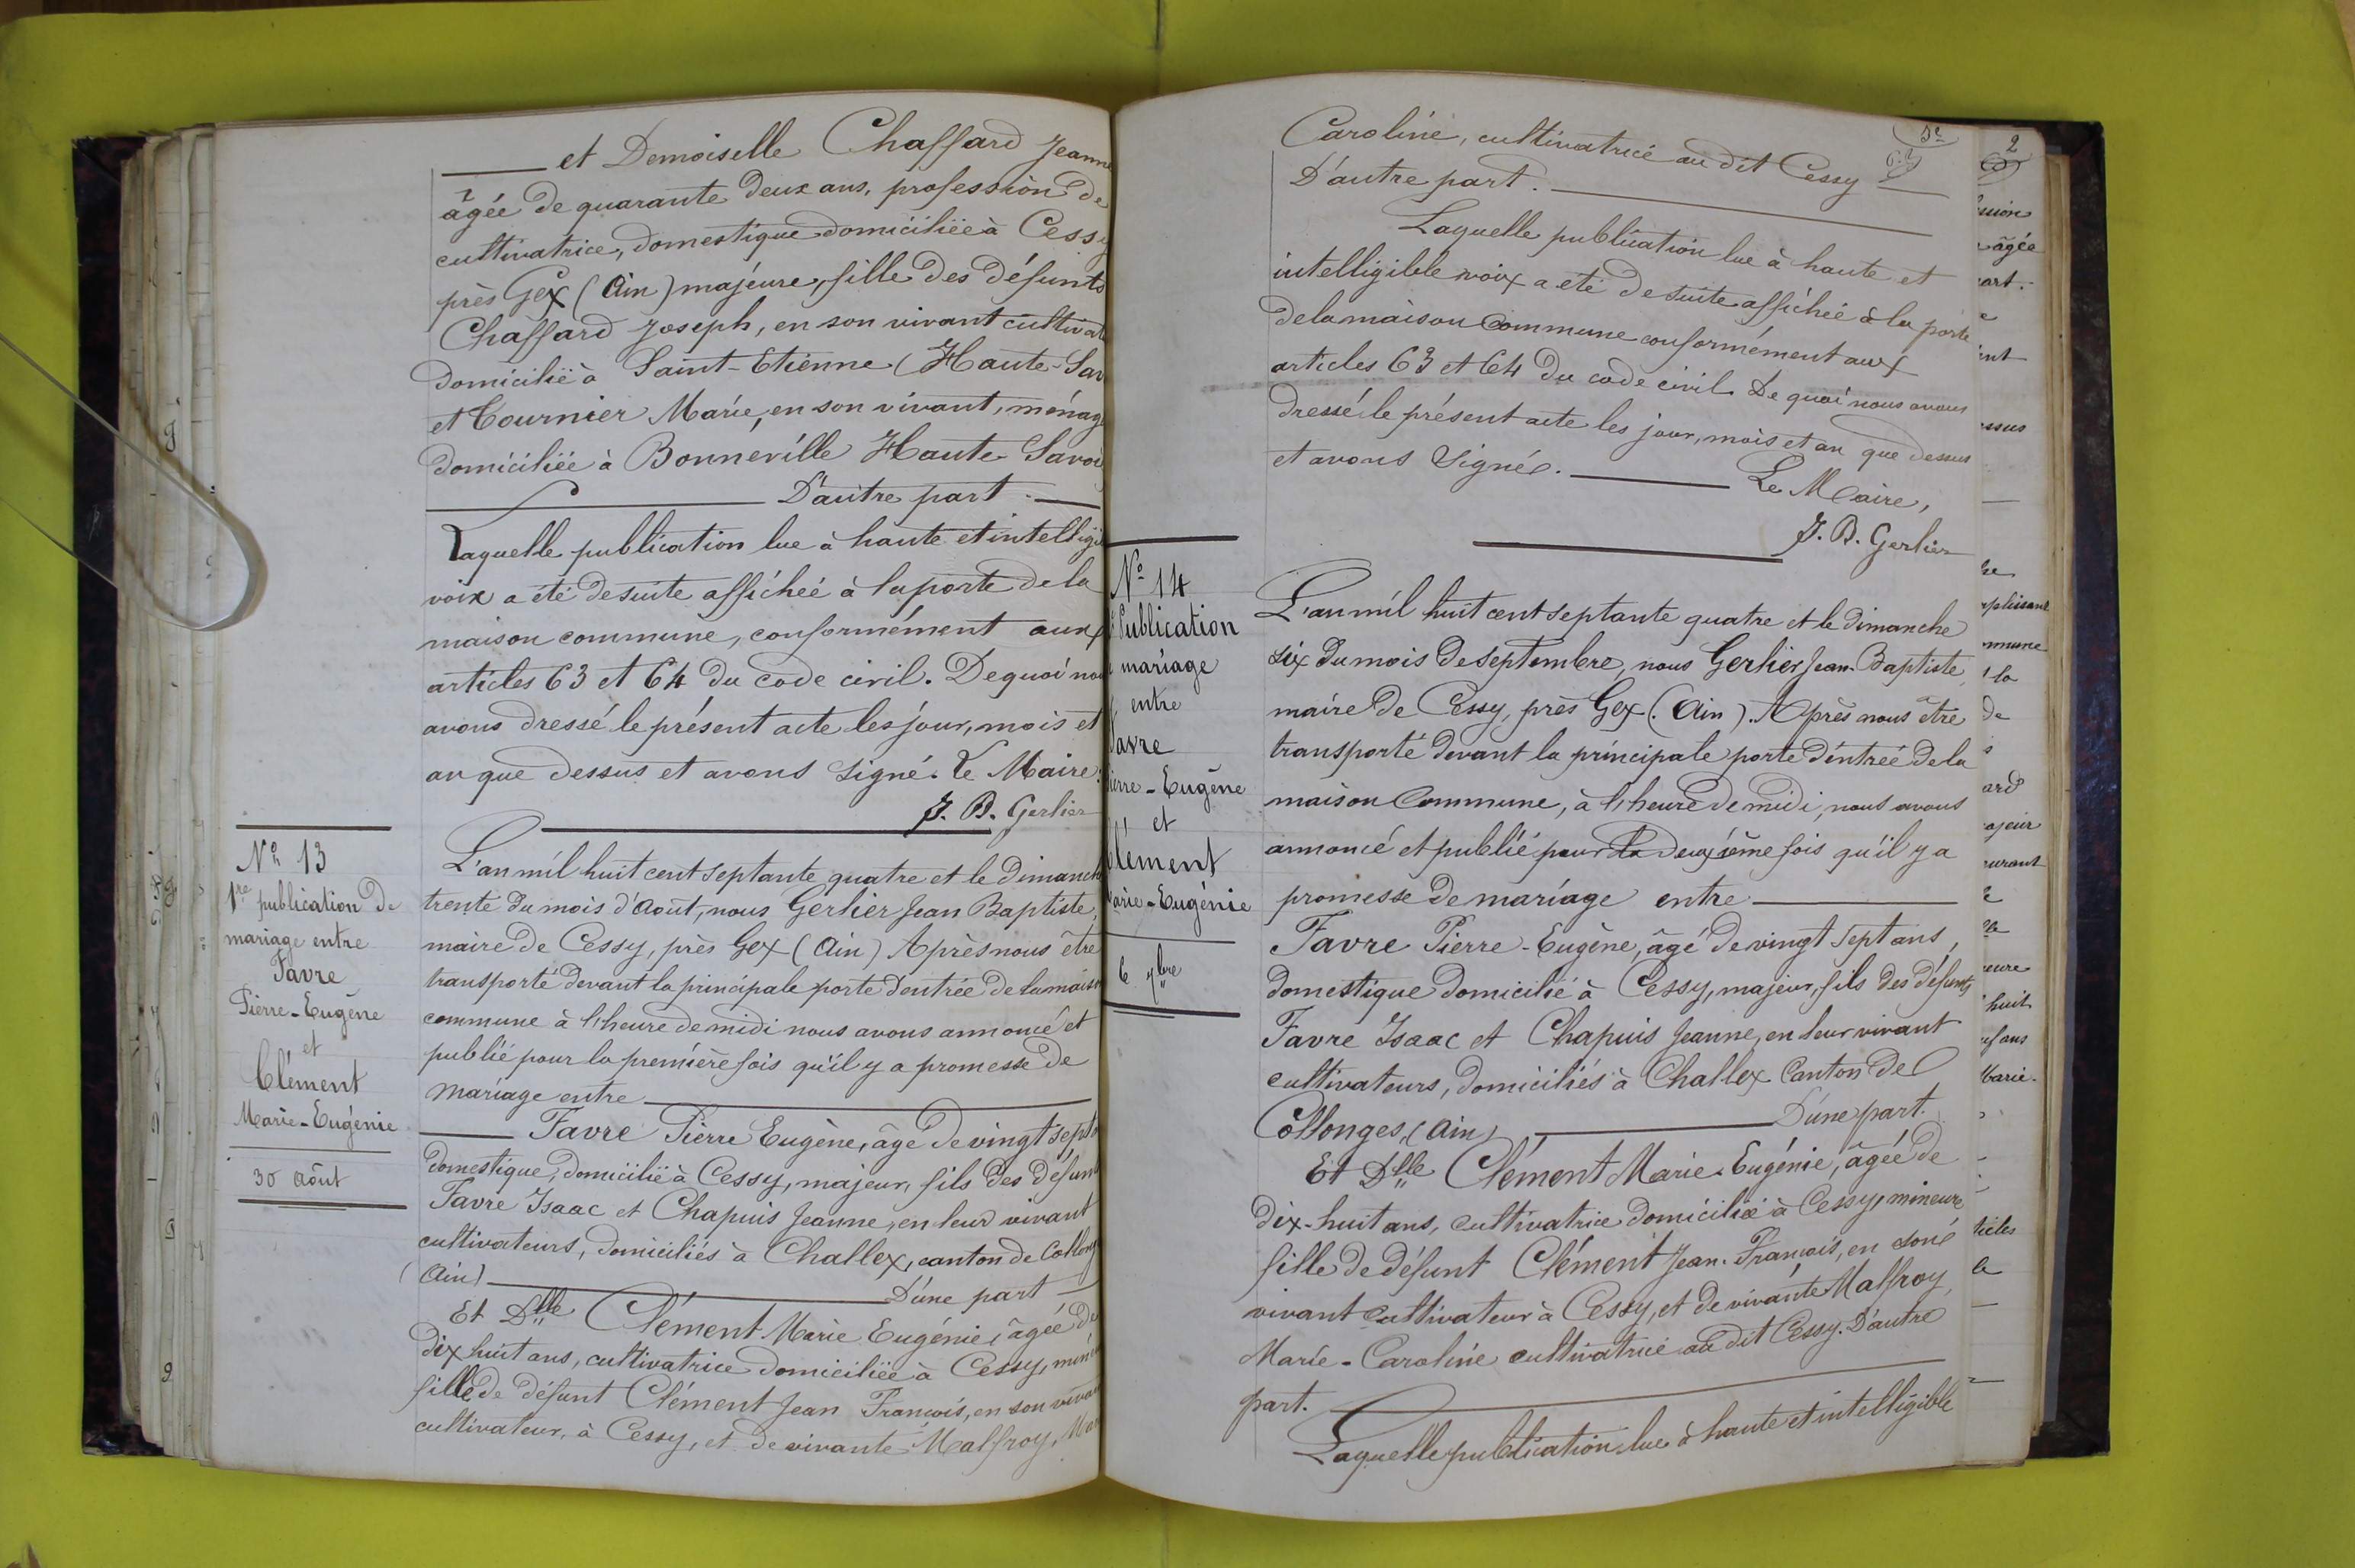 et Demoiselle Chaffard Jeanne
âgée de quarante deux ans, profession de
cultivatrice, domestique domiciliée à Cessy
près Gex (Ain) majeure, fille des défunts
Chaffard Joseph, en son vivant cultivat
domicilié à Saint-Etienne (Haute-Sav
et Tournier Marie, en son vivant, ménag
domiciliée à Bonneville Haute Savoi
D'autre part.
Laquelle publication lue à haute et intelligi
voix a été de suite affichée à la porte de la
maison commune, conformément aux
articles 63 et 64 du code civil. De quoi nou
avons dressé le présent acte les jour, mois et
an que dessus et avons signé. Le Maire:
J. B. Gerlier
No 13
1re publication de
mariage entre
Favre
Pierre-Eugène
et
Clément
Marie-Eugénie
30 août
L'an mil huit cent septante quatre et le dimanch
trente du mois d'août, nous Gerlier Jean Baptiste,
maire de Cessy, près Gex (Ain) Après nous être
transporté devant la principale porte d'entrée de la maiso
commune à l'heure de midi nous avons annoncé et
publié pour la première fois qu'il y a promesse de
mariage entre
Favre Pierre Eugène, âgé de vingt sept
domestique, domicilié à Cessy, majeur, fils des défun
Favre Isaac et Chapuis Jeanne, en leur vivant
cultivateurs, domiciliés à Challex, canton de Collong
(Ain) D'une part
Et Dlle Clément Marie Eugénie, âgée de
dix huit ans, cultivatrice domiciliée à Cessy, mine
fille de défunt Clément Jean François, en son viva
cultivateur, à Cessy, et de vivante Malfroy, Mar
Caroline, cultivatrice au dit Cessy
D'autre part.
Laquelle publication lue à haute et
intelligible voix a été de suite affichée à la porte
de la maison commune conformément aux
articles 63 et 64 du code civil De quoi nous avons
dressé le présent acte les jour, mois et an que dessus
et avons signé. Le Maire,
J. B. Gerlier
No 14
Publication
mariage
entre
Favre
ierre-Eugène
et
Clément
arie-Eugénie
6 7bre
L'an mil huit cent septante quatre et le dimanche
six du mois de septembre, nous Gerlier Jean-Baptiste,
maire de Cessy, près Gex (Ain). Après nous être
transporté devant la principale porte d'entrée de la
maison commune, à l'heure de midi, nous avons
annoncé et publié pour la deuxième fois qu'il y a
promesse de mariage entre
Favre Pierre-Eugène, âgé de vingt sept ans,
domestique domicilié à Cessy, majeur, fils des défunts
Favre Isaac et Chapuis Jeanne, en leur vivant
cultivateurs, domiciliés à Challex Canton de
Collonges, (Ain) D'une part.
Et Dlle Clément Marie-Eugénie, âgée de
dix-huit ans, cultivatrice domiciliée à Cessy, mineure
fille de défunt Clément Jean-François, en son
vivant cultivateur à Cessy, et de vivante Malfroy,
Marie-Caroline cultivatrice au dit Cessy. D'autre
part.
Laquelle publication lue à haute et intelligible
2
âgée
art.
ssus
mmune
la
de
ard
ajeur
huit
Marie
ticles